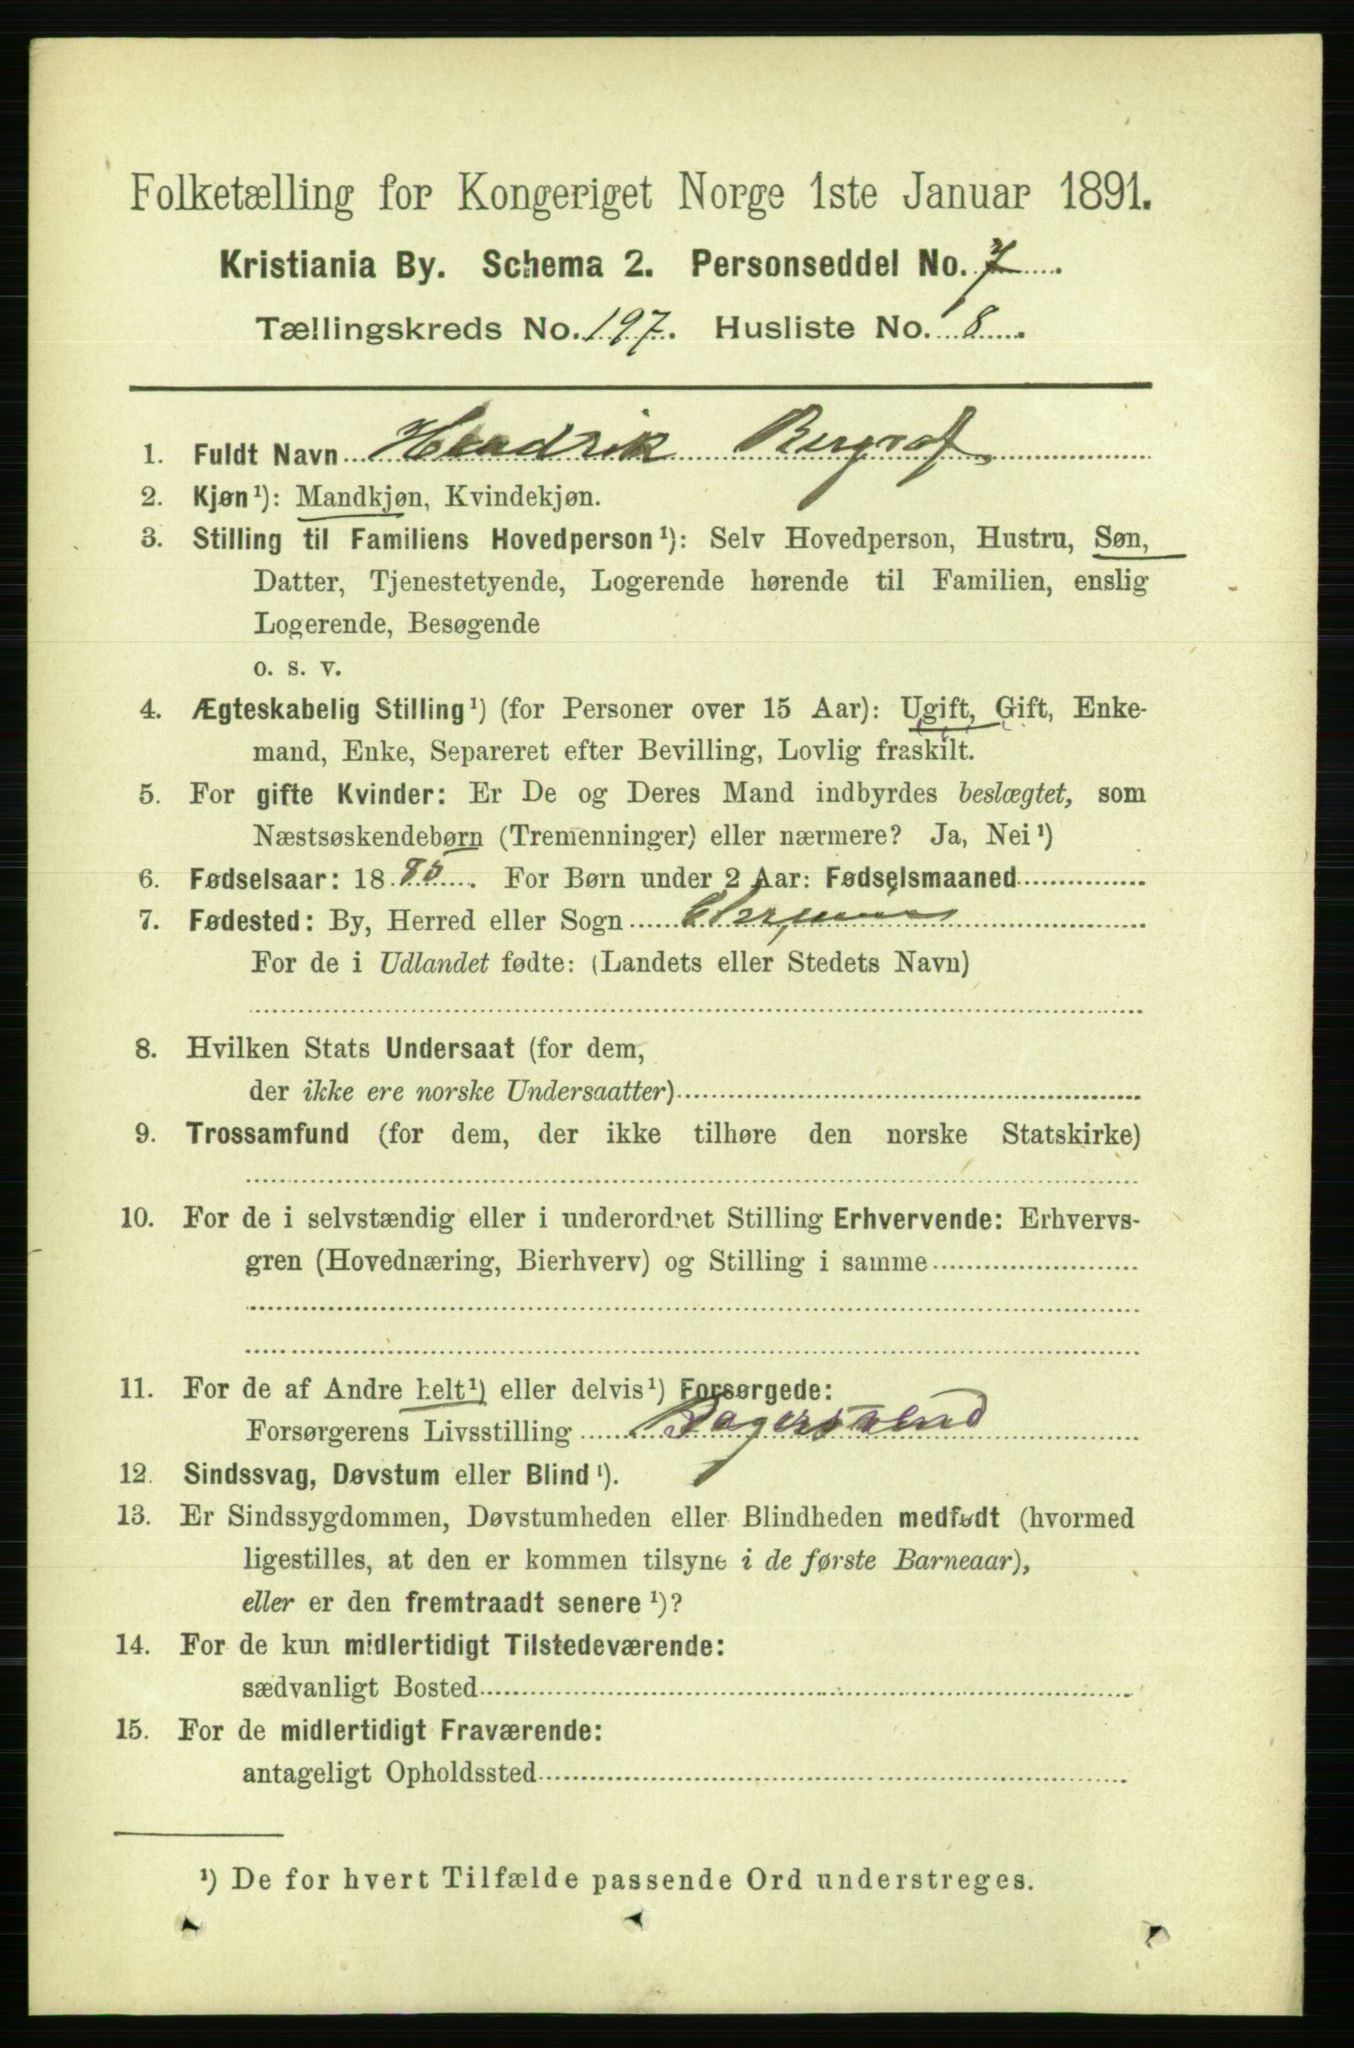 Folketælling for Kongeriget Norge 1ste Januar 1891.
Kristiania By. Schema 2. Personseddel No. 7
Tællingskreds No. 197. Husliste No. 8
1. Fuldt Navn Hendrik
2. Kjøn¹): Mandkjøn, Kvindekjøn.
3. Stilling til Familiens Hovedperson¹): Selv Hovedperson, Hustru, Søn,
Datter, Tjenestetyende, Logerende hørende til Familien, enslig
Logerende, Besøgende
o. s. v.
4. Ægteskabelig Stilling¹) (for Personer over 15 Aar): Ugift, Gift, Enke-
mand, Enke, Separeret efter Bevilling, Lovlig fraskilt.
5. For gifte Kvinder: Er De og Deres Mand indbyrdes beslægtet, som
Næstsøskendebørn (Tremenninger) eller nærmere? Ja, Nei¹)
6. Fødselsaar: 1880. For Børn under 2 Aar: Fødselsmaaned
7. Fødested: By, Herred eller Sogn
For de i Udlandet fødte: (Landets eller Stedets Navn)
8. Hvilken Stats Undersaat (for dem,
der ikke ere norske Undersaatter)
9. Trossamfund (for dem, der ikke tilhøre den norske Statskirke)
10. For de i selvstændig eller i underordnet Stilling Erhvervende: Erhvervs-
gren (Hovednæring, Bierhverv) og Stilling i samme
11. For de af Andre helt¹) eller delvis¹) Forsørgede:
Forsørgerens Livsstilling Bagersvend
12. Sindssvag, Døvstum eller Blind¹).
13. Er Sindssygdommen, Døvstumheden eller Blindheden medfødt (hvormed
ligestilles, at den er kommen tilsyne i de første Barneaar),
eller er den fremtraadt senere¹)?
14. For de kun midlertidigt Tilstedeværende:
sædvanligt Bosted
15. For de midlertidigt Fraværende:
antageligt Opholdssted
¹) De for hvert Tilfælde passende Ord understreges.